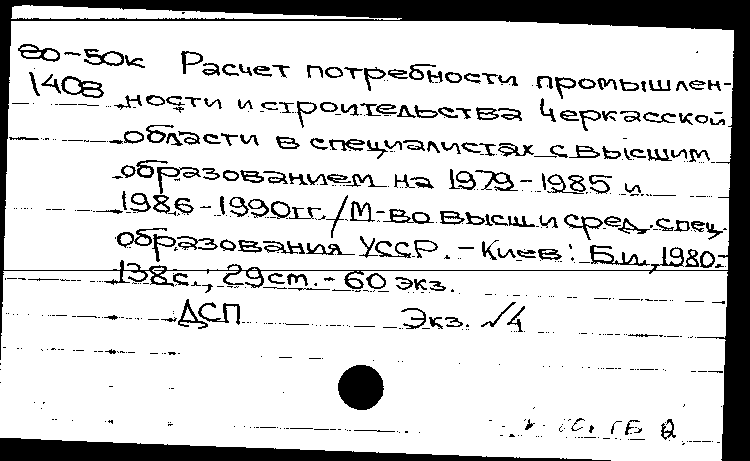 80-50к Расчет потребности промышлен-
1408 ности и строительства Черкасской
области в специалистах с высшим
образованием на 1979-1985 и
1986-1990гг. / М-во высш. и сред. спец.
образования УССР. - Киев: Б.и., 1980.-
138с.; 29см. - 60 экз.
ДСП Экз. №4
ГБ